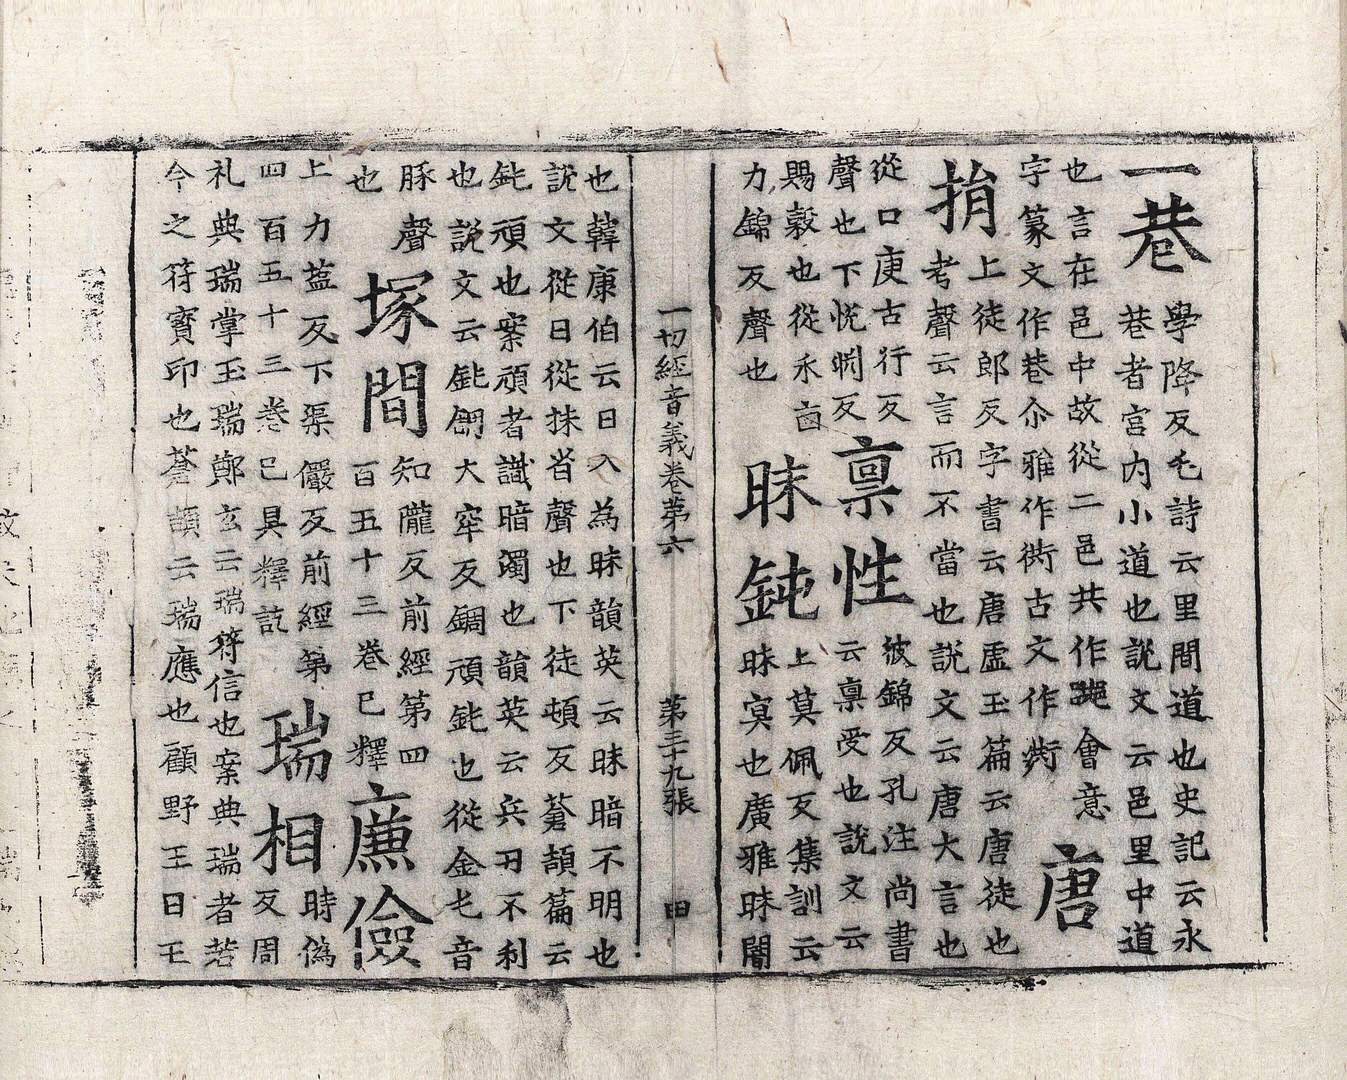 一巷
學降反毛詩云里間道也史記云永
巷者宮內小道也說文云邑里中道
也言在邑中故從二邑共作𨛜會意
字篆文作巷尒雅作衖古文作衖
唐
捐
上徒郎反字書云唐虛玉篇云唐徒也
考聲云言而不當也說文云唐大言也
從口庚古行反
聲也下悅㓮反
稟性
彼錦反孔注尚書
云稟受也說文云
賜穀也從禾㐭
力錦反聲也
昧鈍
上莫佩反集訓云
昧冥也廣雅昧闇
一切經音義卷第六　第三十九張　田
也韓康伯云日入為昧韻英云昧暗不明也
說文從日從抹省聲也下徒頓反蒼頡篇云
鈍頑也案頑者識暗濁也韻英云兵刃不利
也說文云鈍錭大牢反錭頑鈍也從金屯音
豚聲
也
塚間
知隴反前經第四
百五十三卷已釋
廉儉
上力葢反下渠儼反前經第
四百五十三卷已具釋訖
瑞相
時偽
反周
礼典瑞掌玉瑞鄭玄云瑞符信也案典瑞者若
今之符寶印也蒼頡云瑞應也顧野王曰王